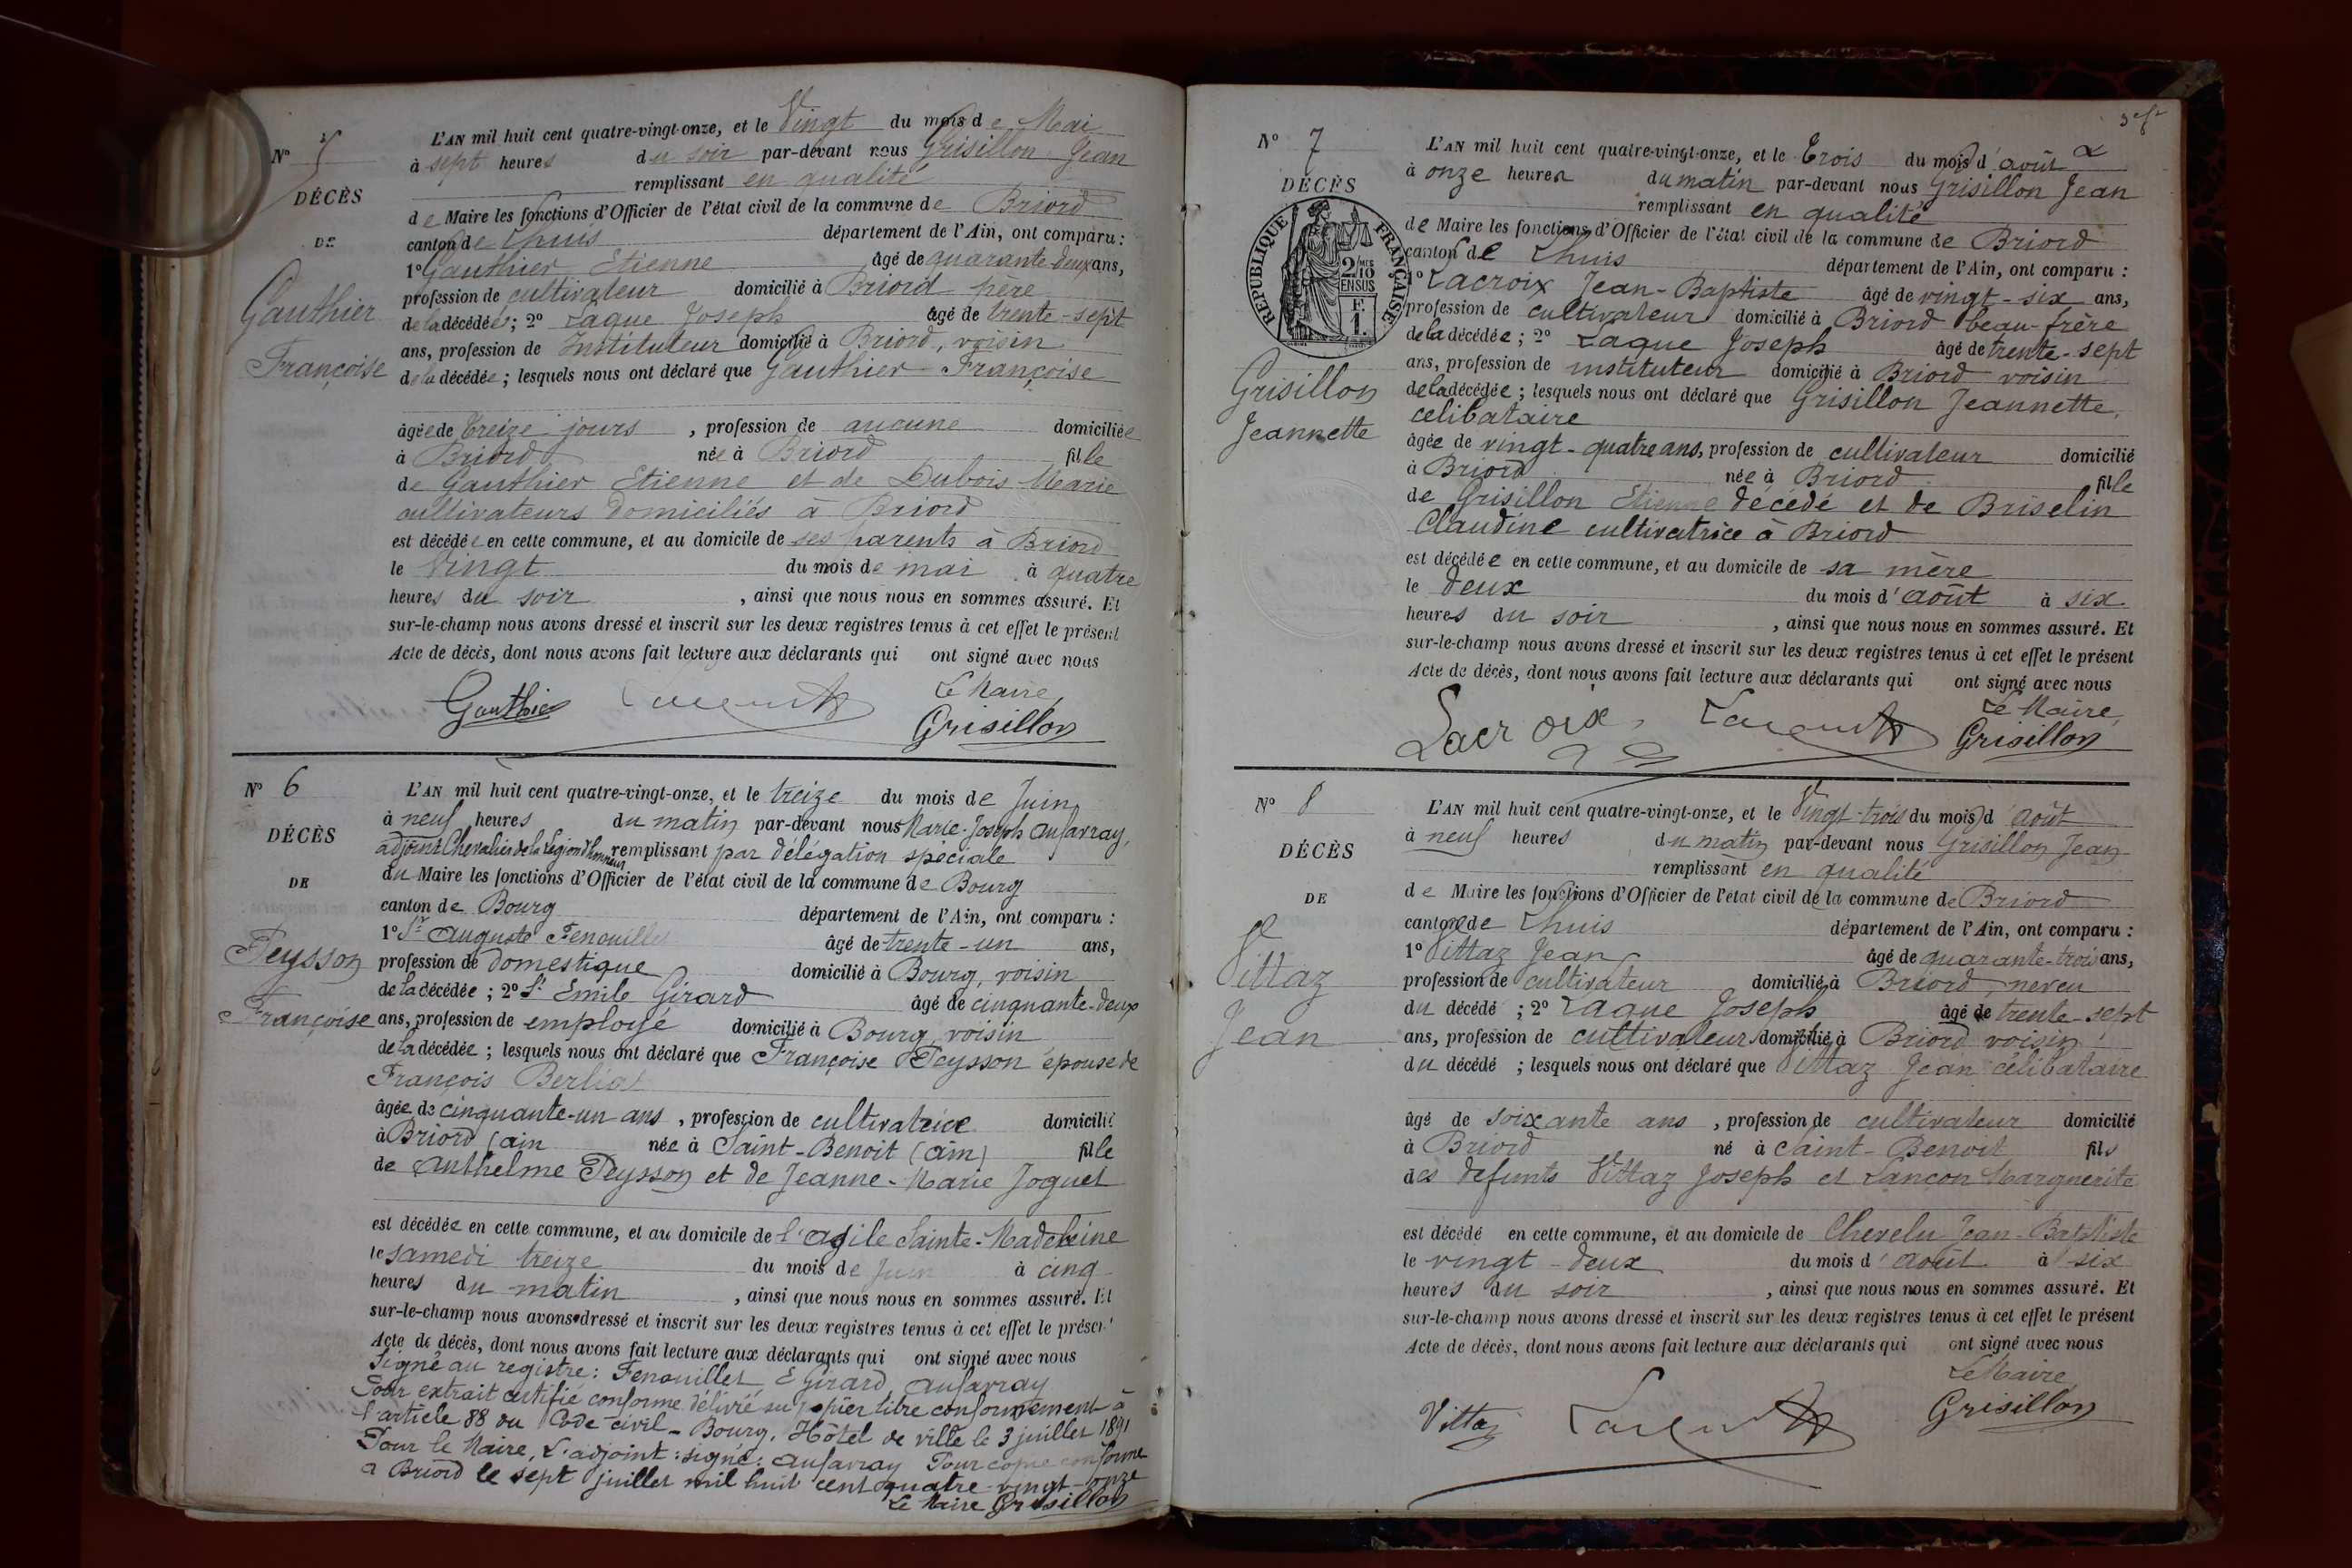 N° 5
DÉCÈS
DE
Gauthier
Françoise
L'AN mil huit cent quatre-vingt-onze, et le Vingt du mois de Mai
à sept heures du soir par-devant nous Grisillon Jean
remplissant en qualité
de Maire les fonctions d'Officier de l'état civil de la commune de Briord
canton de Lhuis département de l'Ain, ont comparu :
1° Gauthier Etienne âgé de quarante-deux ans,
profession de cultivateur domicilié à Briord père
de la décédée ; 2° Laque Joseph âgé de trente-sept
ans, profession de Instituteur domicilié à Briord, voisin
de la décédée ; lesquels nous ont déclaré que Gauthier Françoise
âgée de Treize jours , profession de aucune domiciliée
à Briord née à Briord fille
de Gauthier Etienne et de Dubois Marie
cultivateurs domiciliés à Briord
est décédée en cette commune, et au domicile de ses parents à Briord
le Vingt du mois de mai à quatre
heures du soir , ainsi que nous nous en sommes assuré. Et
sur-le-champ nous avons dressé et inscrit sur les deux registres tenus à cet effet le présent
Acte de décès, dont nous avons fait lecture aux déclarants qui ont signé avec nous
Le Maire,
Gauthier Grisillon
N° 6
DÉCÈS
DE
Peysson
Françoise
L'AN mil huit cent quatre-vingt-onze, et le treize du mois de Juin
à neuf heures du matin par-devant nous Marie-Joseph Aufavray,
adjoint Chevalier de la Légion d'honneur remplissant par délégation spéciale
du Maire les fonctions d'Officier de l'état civil de la commune de Bourg
canton de Bourg département de l'Ain, ont comparu :
1° Sr Auguste Fenouillet âgé de trente-un ans,
profession de domestique domicilié à Bourg, voisin
de la décédée ; 2° Sr Emile Girard âgé de cinquante-deux
ans, profession de employé domicilié à Bourg, voisin
de la décédée ; lesquels nous ont déclaré que Françoise Peysson épouse de
François Berliat
âgée de cinquante-un ans , profession de cultivatrice domicilié
à Briord (ain née à Saint-Benoit (ain) fille
de Anthelme Peysson et de Jeanne-Marie Joguet
est décédée en cette commune, et au domicile de l'asile Sainte-Madeleine
le samedi treize du mois de Juin à cinq
heures du matin , ainsi que nous nous en sommes assuré. Et
sur-le-champ nous avons dressé et inscrit sur les deux registres tenus à cet effet le présent
Acte de décès, dont nous avons fait lecture aux déclarants qui ont signé avec nous
Signé au registre : Fenouillet E Girard Aufavray
Pour extrait certifié conforme délivré sur papier libre conformément à
l'article 88 du Code civil - Bourg, Hôtel de ville le 3 juillet 1891
Pour le Maire, L'adjoint : signé : Aufavray Pour copie conforme
à Briord le sept juillet mil huit cent quatre-vingt-onze
Le Maire Grisillon
N° 7
DÉCÈS
REPUBLIQUE FRANÇAISE
2/10 EN SUS
F. 1.
Grisillon
Jeannette
L'AN mil huit cent quatre-vingt-onze, et le Trois du mois d'août
à onze heures du matin par-devant nous Grisillon Jean
remplissant en qualité
de Maire les fonctions d'Officier de l'état civil de la commune de Briord
canton de Lhuis département de l'Ain, ont comparu :
1° Lacroix Jean-Baptiste âgé de vingt-six ans,
profession de cultivateur domicilié à Briord beau-frère
de la décédée ; 2° Laque Joseph âgé de trente-sept
ans, profession de instituteur domicilié à Briord voisin
de la décédée ; lesquels nous ont déclaré que Grisillon Jeannette,
célibataire
âgée de vingt-quatre ans, profession de cultivateur domicilié
à Briord née à Briord fille
de Grisillon Etienne décédé et de Briselin
Claudine cultivatrice à Briord
est décédée en cette commune, et au domicile de sa mère
le deux du mois d'août à six
heures du soir , ainsi que nous nous en sommes assuré. Et
sur-le-champ nous avons dressé et inscrit sur les deux registres tenus à cet effet le présent
Acte de décès, dont nous avons fait lecture aux déclarants qui ont signé avec nous
Le Maire,
Lacroix Grisillon
N° 8
DÉCÈS
DE
Vittaz
Jean
L'AN mil huit cent quatre-vingt-onze, et le Vingt-trois du mois d'août
à neuf heures du matin par-devant nous Grisillon Jean
remplissant en qualité
de Maire les fonctions d'Officier de l'état civil de la commune de Briord
canton de Lhuis département de l'Ain, ont comparu :
1° Vittaz Jean âgé de quarante-trois ans,
profession de cultivateur domicilié à Briord, neveu
du décédé ; 2° Laque Joseph âgé de trente-sept
ans, profession de cultivateur domicilié à Briord voisin
du décédé ; lesquels nous ont déclaré que Vittaz Jean célibataire
âgé de soixante ans , profession de cultivateur domicilié
à Briord né à Saint-Benoit fils
des défunts Vittaz Joseph et Lançon Marguerite
est décédé en cette commune, et au domicile de Chevelu Jean-Baptiste
le vingt-deux du mois d'août à six
heures du soir , ainsi que nous nous en sommes assuré. Et
sur-le-champ nous avons dressé et inscrit sur les deux registres tenus à cet effet le présent
Acte de décès, dont nous avons fait lecture aux déclarants qui ont signé avec nous
Le Maire,
Vittaz Grisillon